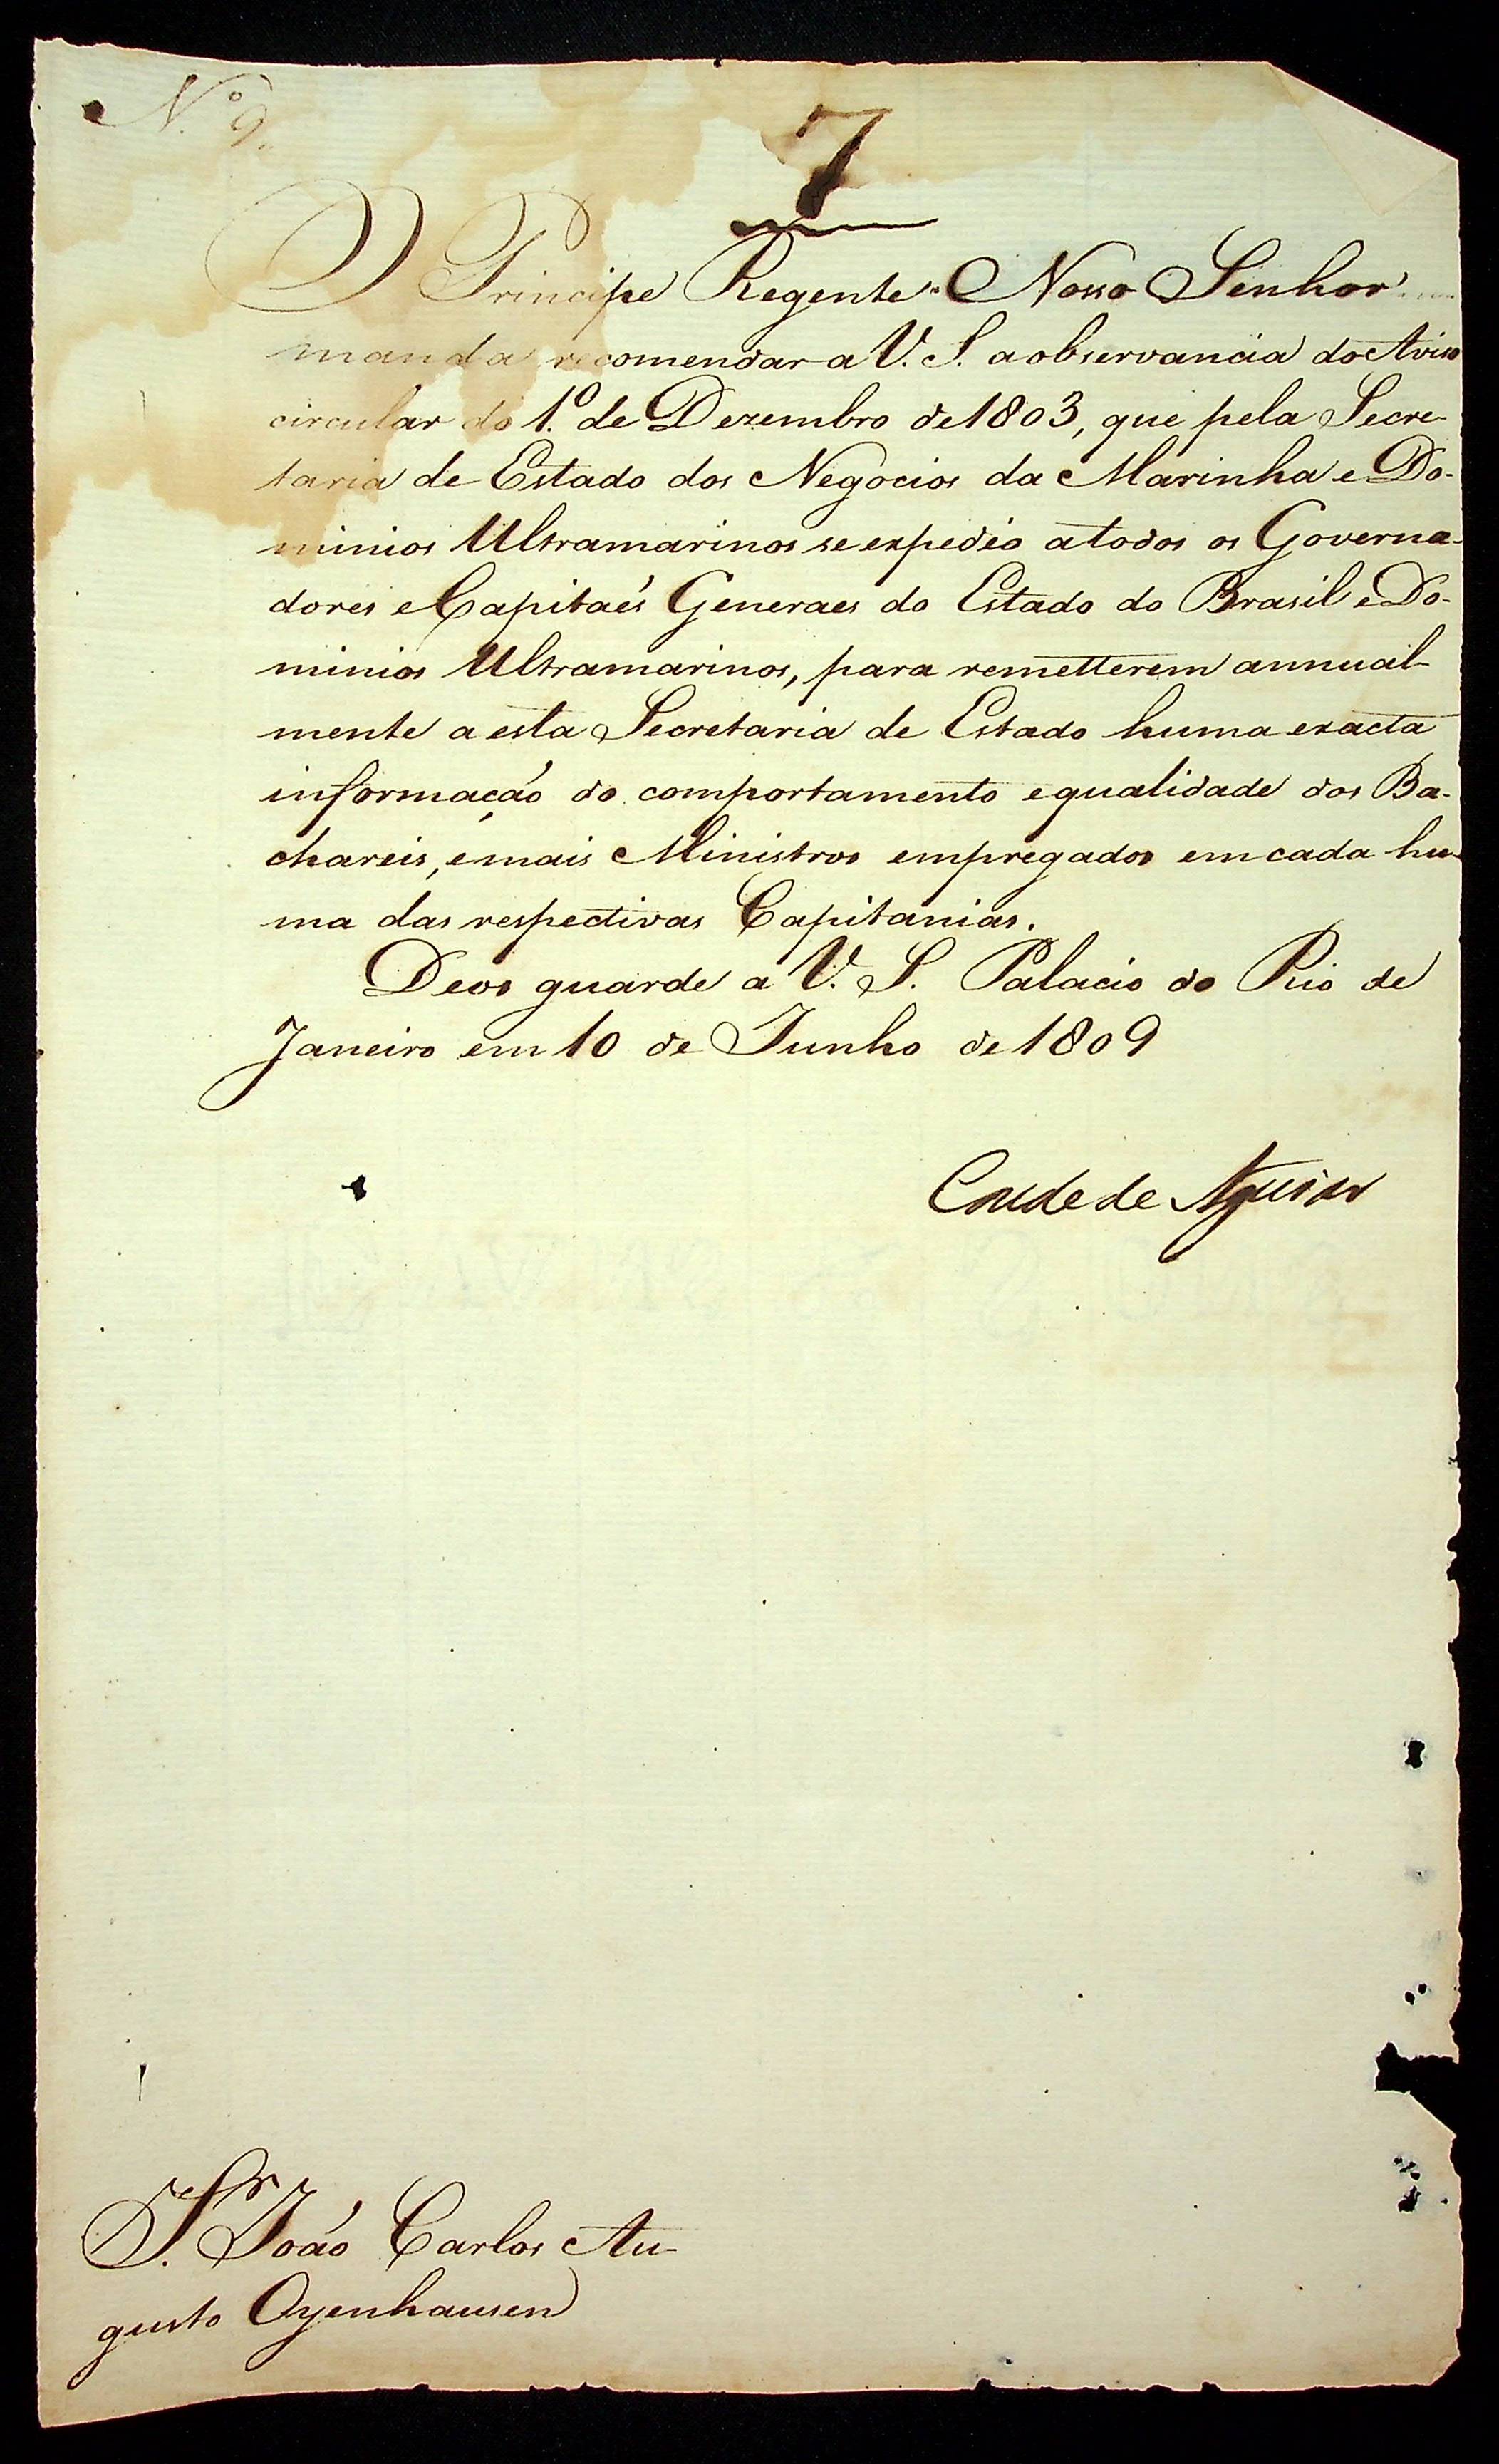 N.º 9.
7
O Principe Regente Nosso Senhor
manda recomendar a V. S. a observancia do Aviso
circular do 1.º de Dezembro de 1803, que pela Secre-
taria de Estado dos Negocios da Marinha e Do-
minios Ultramarinos se expedio a todos os Governa-
dores e Capitaẽs Generaes do Estado do Brasil e Do-
minios Ultramarinos, para remetterem annual-
mente a esta Secretaria de Estado huma exacta
informação do comportamento e qualidade dos Ba-
chareis, e mais Ministros empregados em cada hu-
ma das respectivas Capitanias.
Deos guarde a V. S. Palacio do Rio de
Janeiro em 10 de Junho de 1809
Conde de Aguiar
S.r João Carlos Au-
gusto Oyenhausen